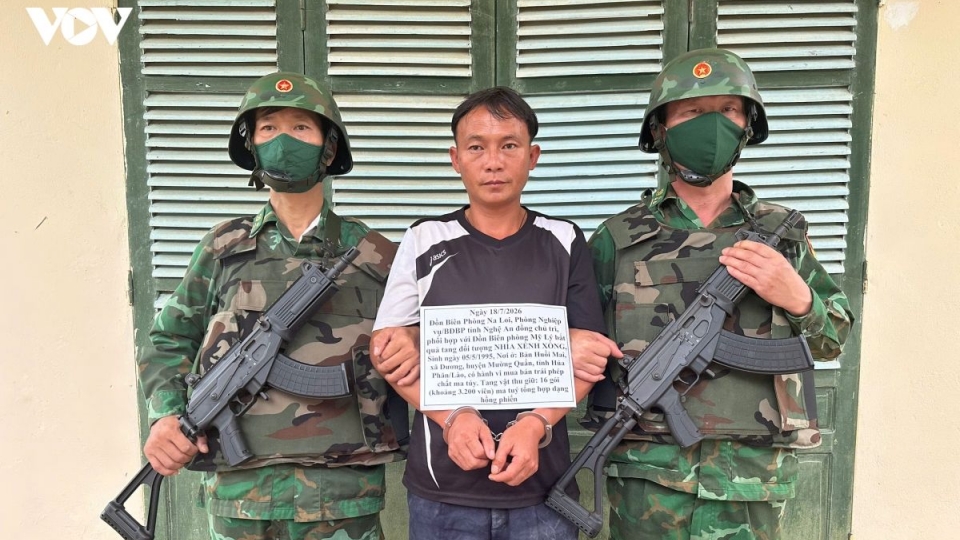 VOV
asics
Ngày 18/7/2026
Đồn Biên Phòng Na Loi, Phòng Nghiệp
vụ/BĐBP tỉnh Nghệ An đồng chủ trì,
phối hợp với Đồn Biên phòng Mỹ Lý bắt
quả tang đối tượng NHIA XÊNH XÔNG,
Sinh ngày 05/5/1995, Nơi ở: Bản Huồi Moi,
xã Dương, huyện Mường Quắn, tỉnh Hủa
Phăn/Lào, có hành vi mua bán trái phép
chất ma túy. Tang vật thu giữ: 16 gói
(khoảng 3.200 viên) ma tuý tổng hợp dạng
hồng phiến